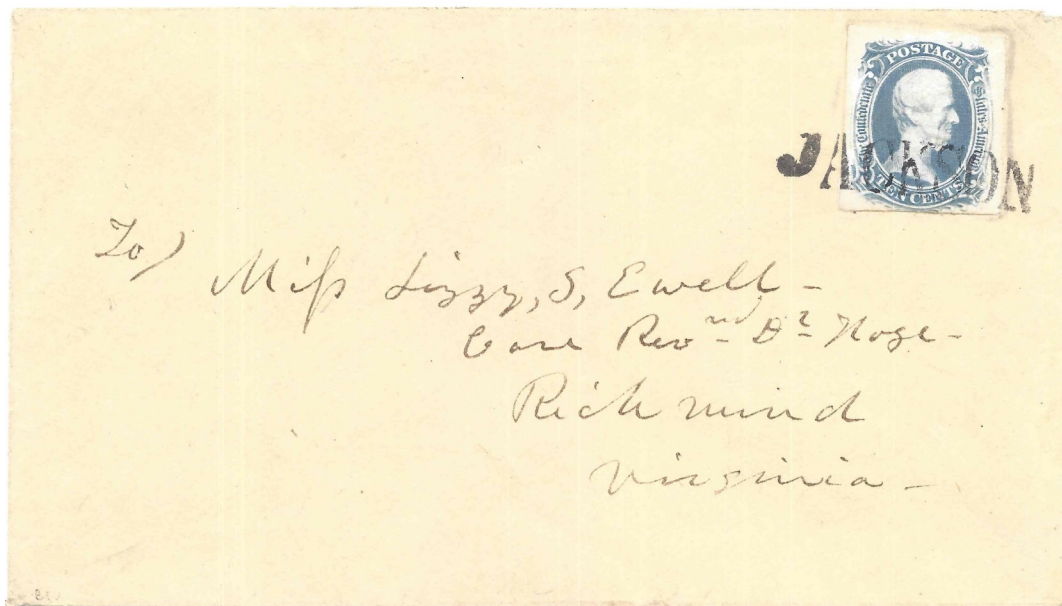 POSTAGE
The Confederate States of America
TEN CENTS
JACKSON
To)
Miss Lizzy, S, Ewell -
Care Revnd Dr Hoge -
Richmond
Virginia -